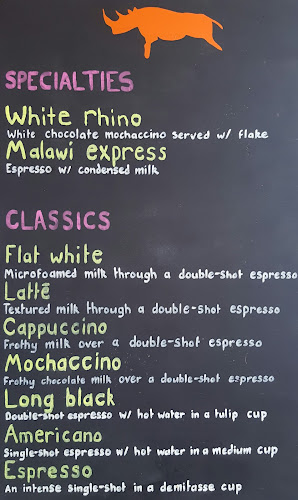 SPECIALTIES
White rhino
White chocolate mochaccino served w/ flake
Malawi express
Espresso w/ condensed milk
CLASSICS
Flat white
Microfoamed milk through a double-shot espresso
Lattē
Textured milk through a double-shot espresso
Cappuccino
Frothy milk over a double-shot espresso
Mochaccino
Frothy chocolate milk over a double-shot espresso
Long black
Double-shot espresso w/ hot water in a tulip cup
Americano
Single-shot espresso w/ hot water in a medium cup
Espresso
An intense single-shot in a demitasse cup